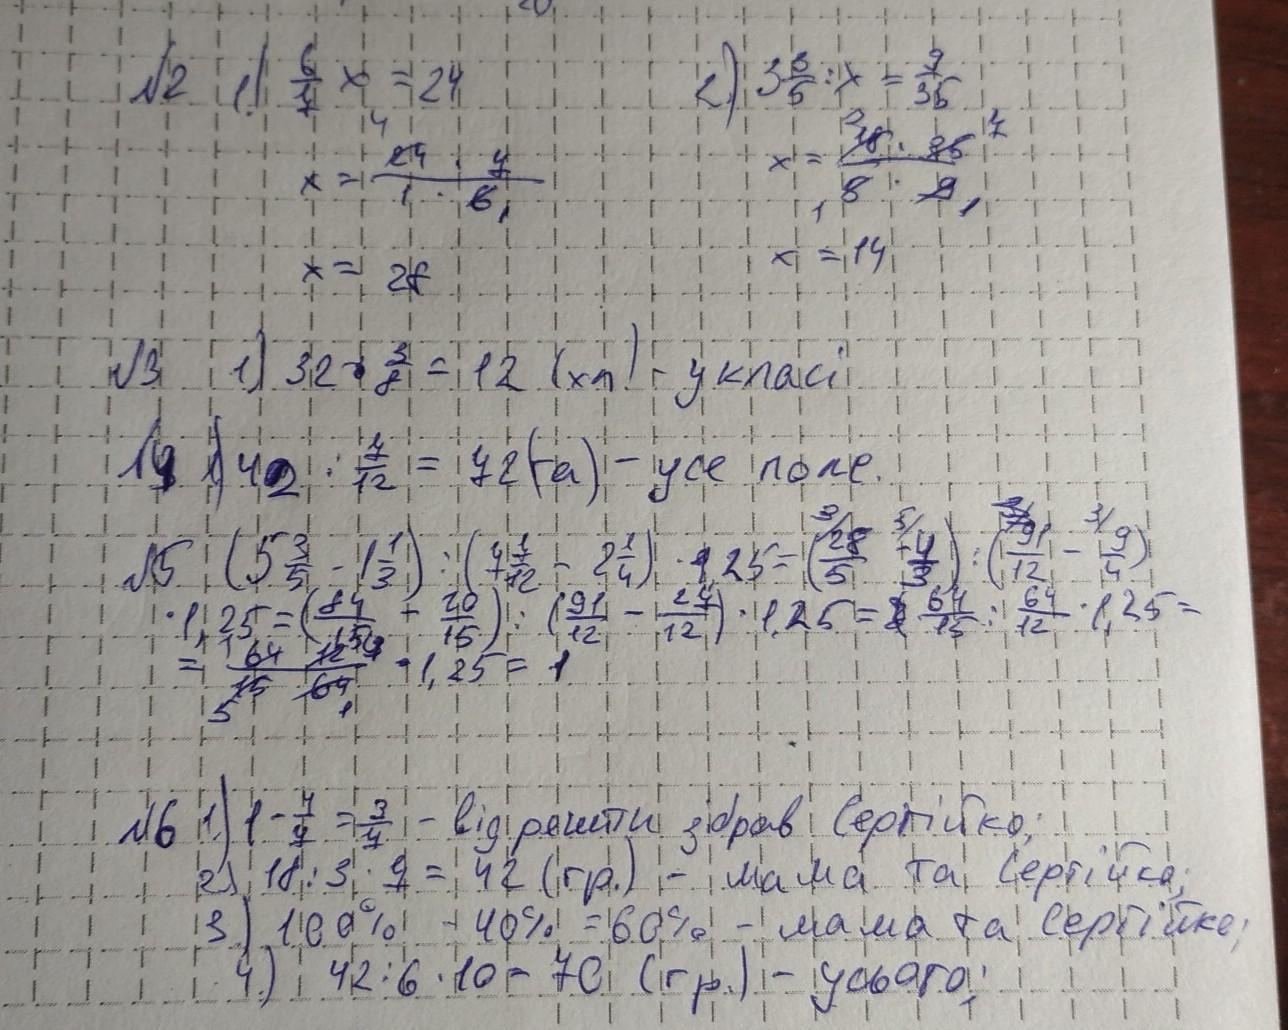 №2 1) 6/7 x = 24 2) 3 3/5 : x = 9/35
x = 24 · 7 / 1 · 6 x = 18 · 35 / 5 · 9
x = 28 x = 14
№3 1) 32 · 3/8 = 12 (хл) - у класі
№4 1) 42 : 7/12 = 72 (га) - усе поле.
№5 (5 3/5 - 1 1/3) : (7 7/12 - 2 1/4) · 1,25 = (28/5 - 4/3) : (91/12 - 9/4)
· 1,25 = (84/15 + 20/15) : (91/12 - 27/12) · 1,25 = 64/15 : 64/12 · 1,25 =
= 64 12 / 15 64 · 1,25 = 1
№6 1) 1 - 4/7 = 3/7 - від решти зібрав Сергійко;
2) 18 : 3 · 7 = 42 (гр.) - мама та Сергійко;
3) 100% - 40% = 60% - мама та Сергійко;
4) 42 : 6 · 10 = 70 (гр.) - усього;